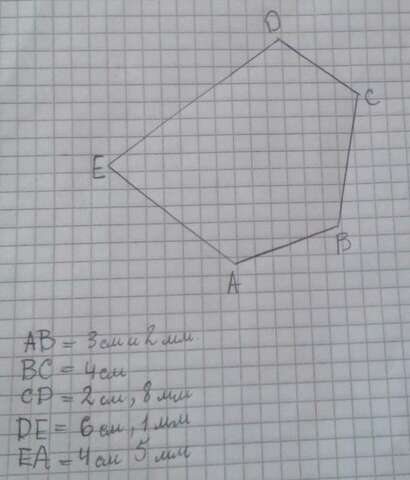 D
C
E
B
A
AB = 3 см и 2 мм.
BC = 4 см
CD = 2 см, 8 мм
DE = 6 см, 1 мм
EA = 4 см 5 мм